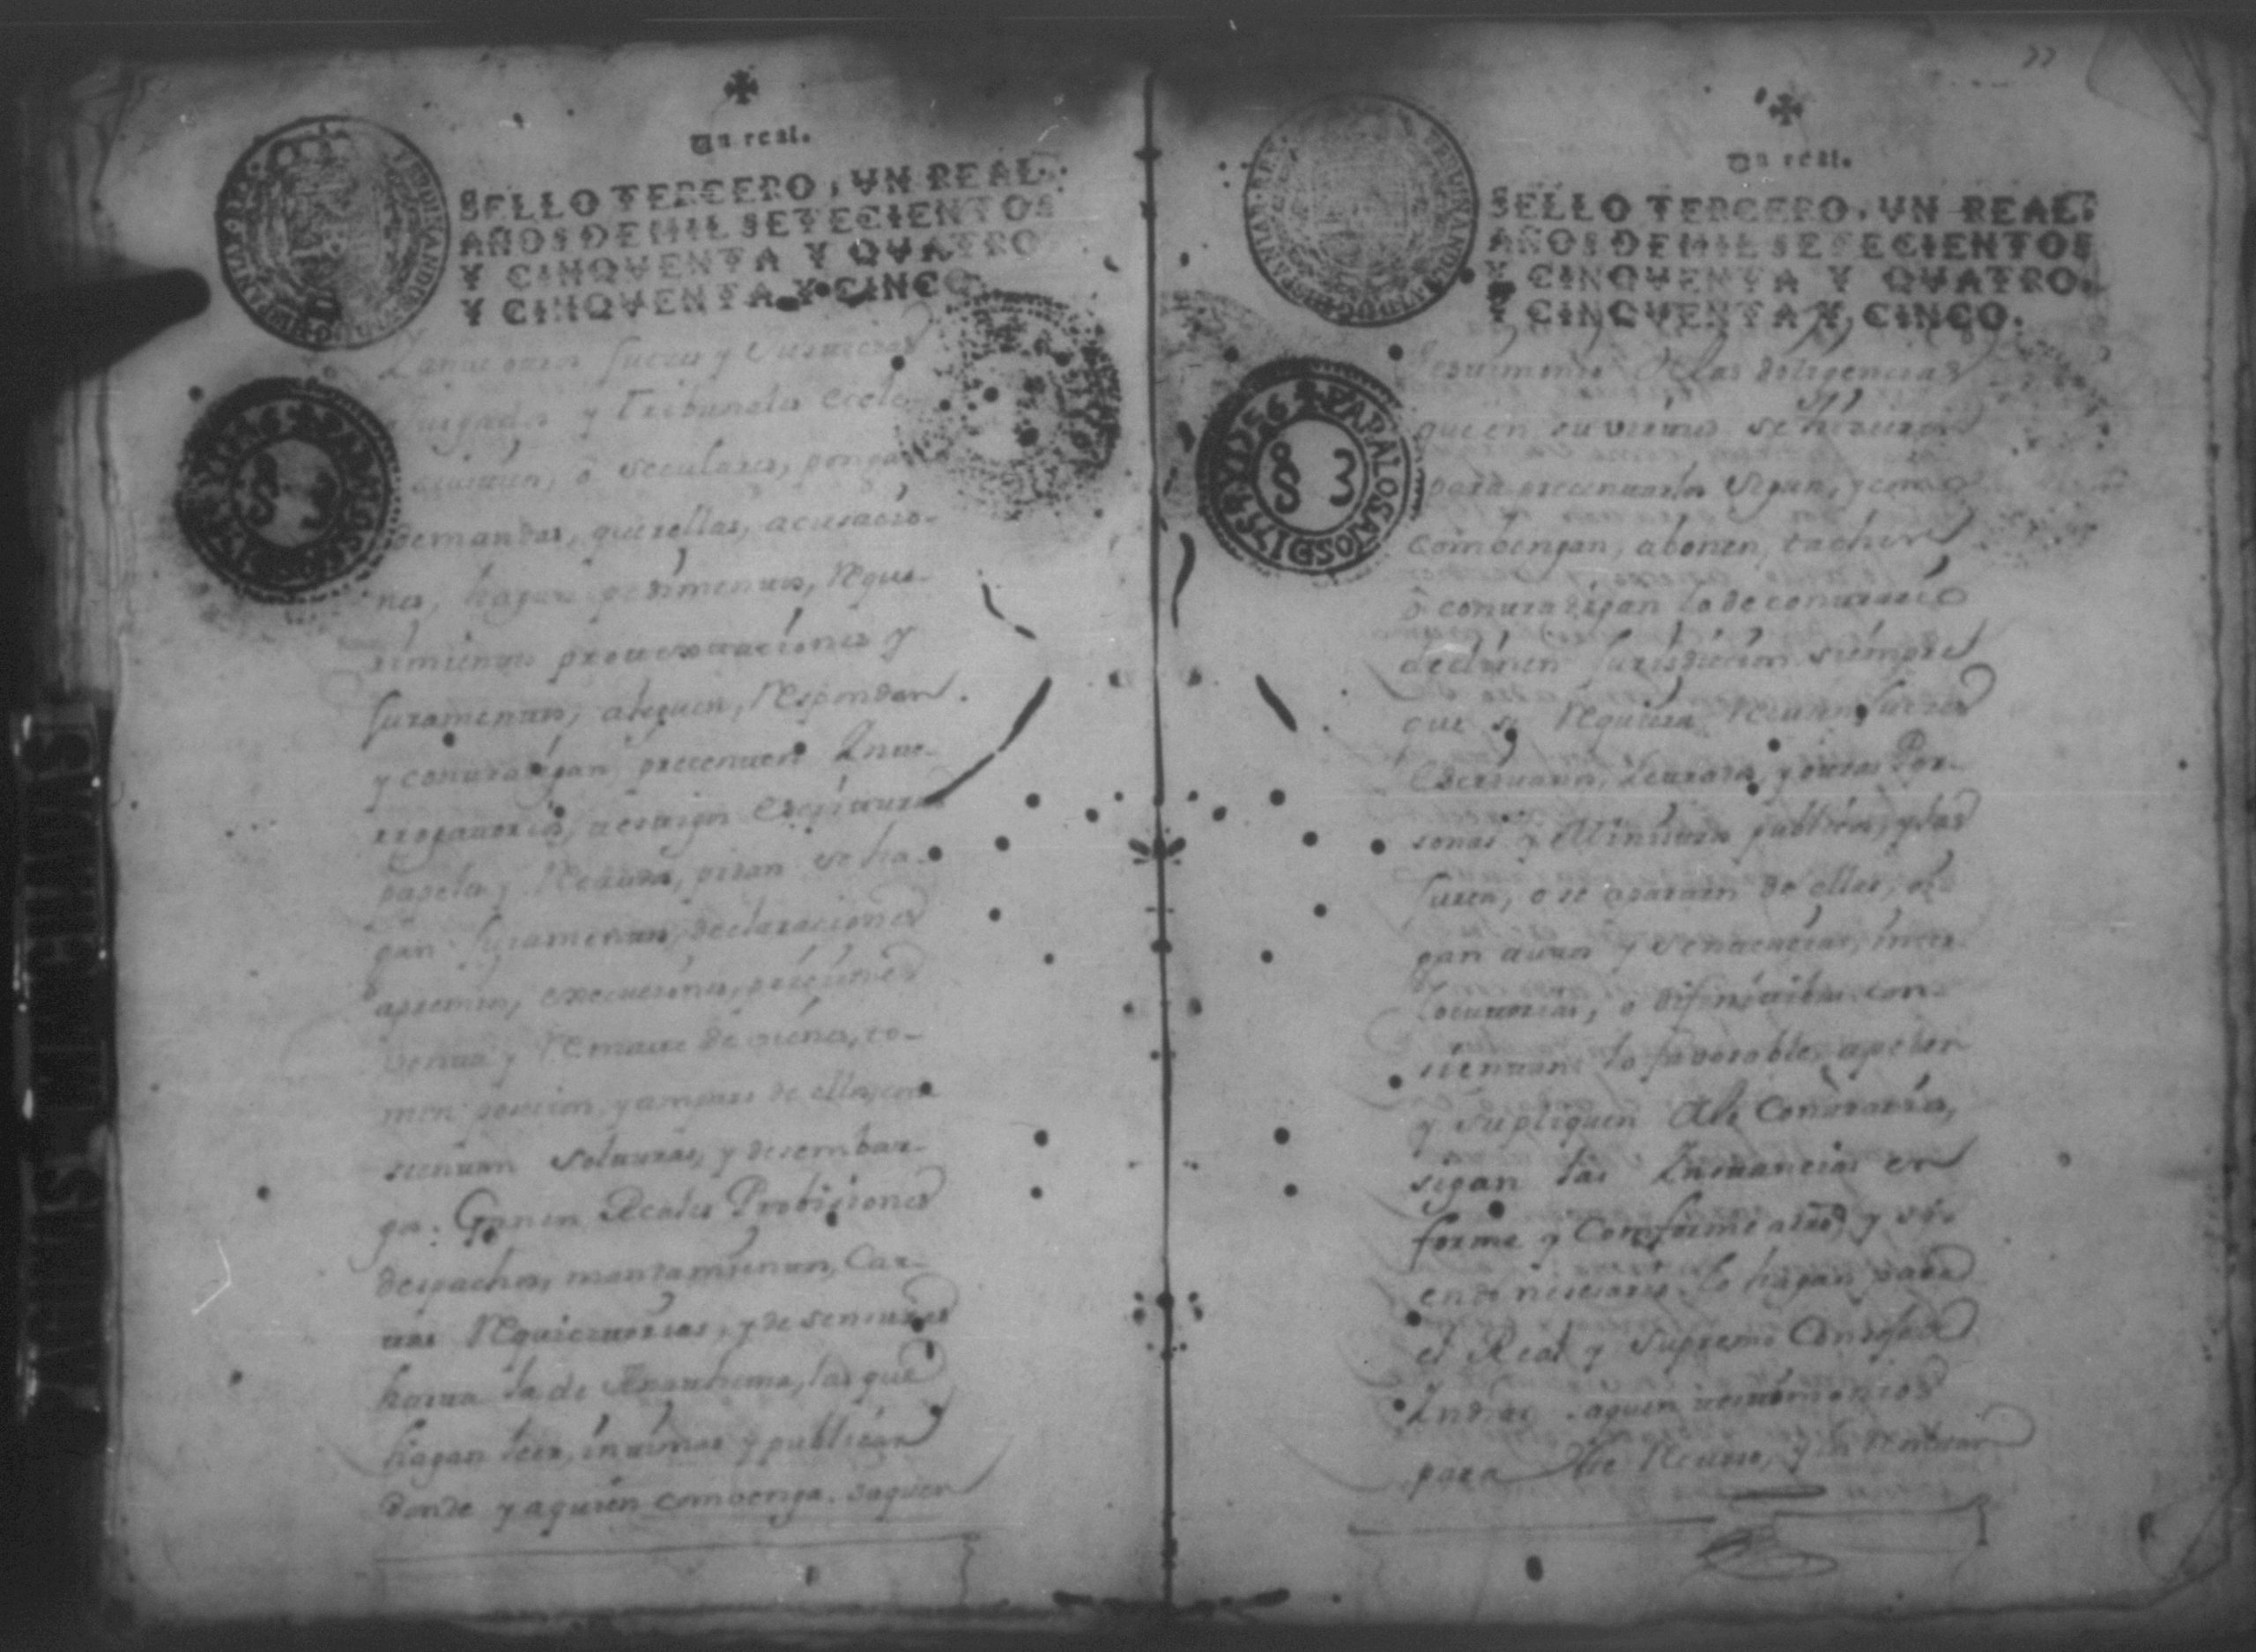 Un real.
SELLO TERCERO, VN REAL.
AÑOS DE MIL SETECIENTOS
Y CINQVENTA Y QVATRO
Y CINQVENTA Y CINCO.
y Tribunales Ecle-
ò seculares, pongan
demandas, querellas, acusacio-
nes, hagan pedimentos, Reque-
rimientos protextaciones y
Juramentos, aleguen, Respondan
y contradigan presenten Ynte-
rrogatorios, testigos Escripturas
papeles y Recados, pidan se ha-
gan Juramentos, declaraciones
apremios, execusiones, priciones
ventas y Remates de vienes, to-
men posecion, y amparo de ellos, con-
sientan solturas, y desembar-
go. Ganen Reales Probiciones
despachos, mandamientos, Car-
tas Requicitorias, y de sensuras
hasta la de Anathema, las que
hagan leer, intimar y publicar
donde y aquien combenga. saquen
33
Un real.
SELLO TERCERO, VN REAL.
AÑOS DE MIL SETECIENTOS
Y CINQVENTA Y QVATRO.
Y CINQVENTA Y CINCO.
PARA LOS AÑOS D 1755 Y 1756
S 3
Testimonio de las diligencias
que en su virtud se hicieren
para presentarlos segun, y como
combengan, abonen, tachen
ò contradigan lo de contrario
declinen Jurisdicion siempre
que se Requiera Recusen Jueces
Escrivanos, Letrados, y otras Per-
sonas y Ministros publicos, y las
Juren, o se aparten de ellas, oi-
gan autos y sentencias, inter-
locutorias, o difinitibas con-
sientan lo favorable, apelen
y supliquen de lo Contrario,
sigan las Ynstancias en
forma y Conforme a dro, y si-
endo nesesario lo hagan para
el Real y Supremo Consejo de
Yndias saquen testimonios
para